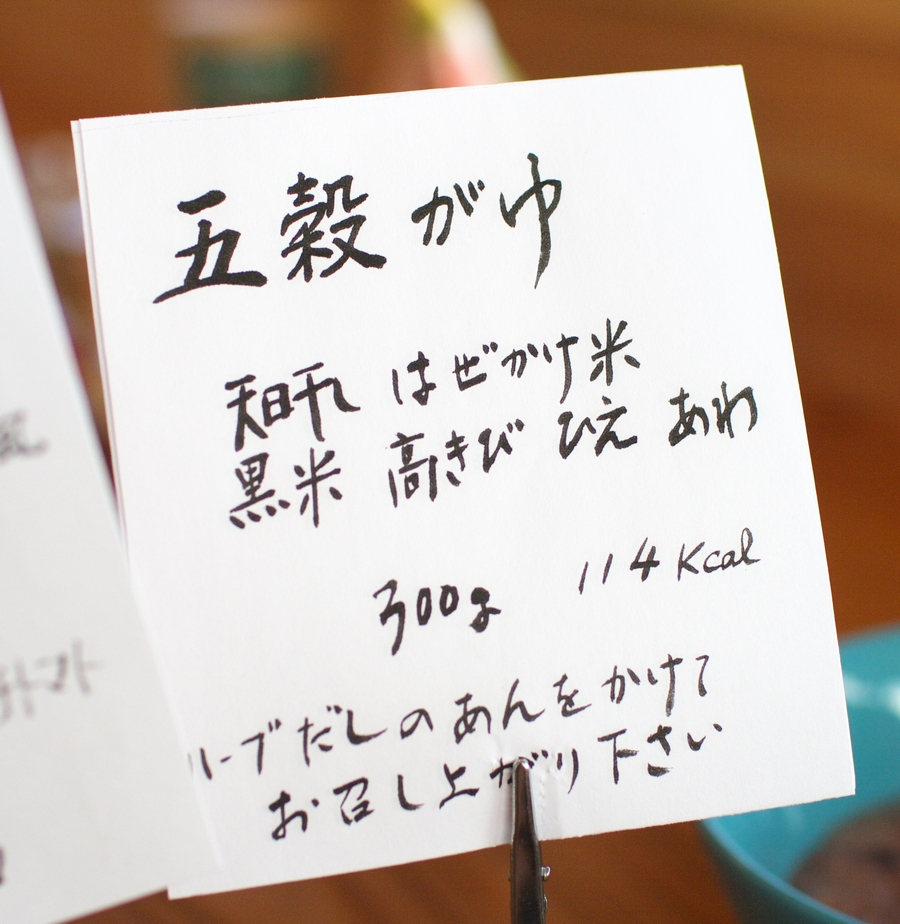 五穀がゆ
天日干し はぜかけ米
黒米 高きび ひえ あわ
300g 114Kcal
ハーブだしのあんをかけて
お召し上がり下さい
トマト